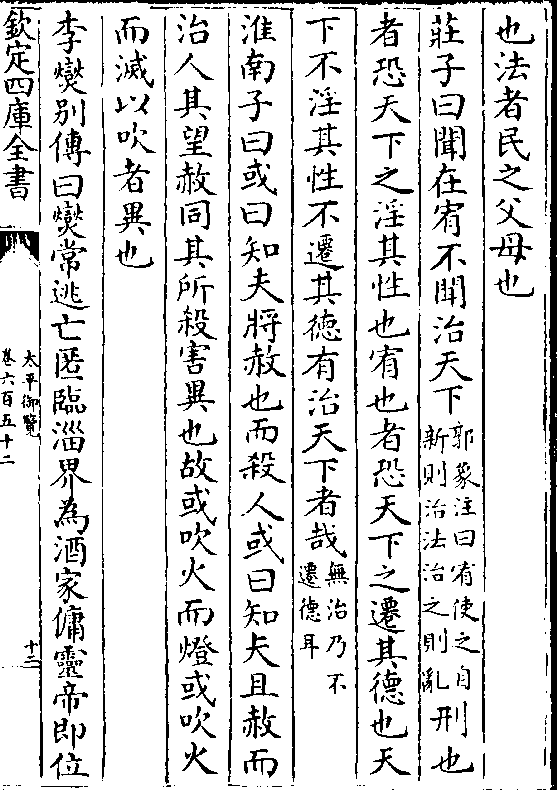 也法者民之父母也
莊子曰聞在宥不聞治天下郭象注曰宥使之自新則治法治之則亂刑也
者恐天下之淫其性也宥也者恐天下之遷其德也天
下不淫其性不遷其德有治天下者哉無治乃不遷德耳
淮南子曰或曰知夫將赦也而殺人或曰知夫且赦而
治人其望赦同其所殺害異也故或吹火而燈或吹火
而滅以吹者異也
李燮別傳曰燮常逃亡匿臨淄界為酒家傭靈帝即位
欽定四庫全書
太平御覽
卷六百五十二
十三